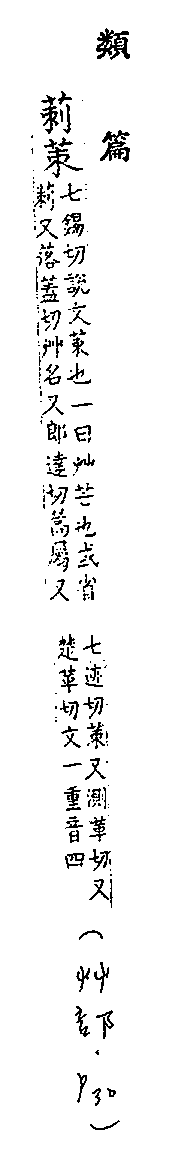 類篇
莿茦
七錫切說文茦也一曰艸芒也或省
莿又落蓋切艸名又郎達切蒿屬又
七迹切茦又測革切又
楚革切文一重音四
(艸部.P30)